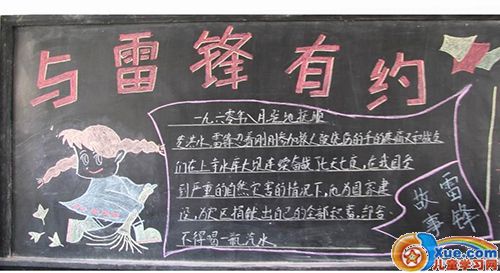 与雷锋有约
一九六零年八月驻地抚顺
发洪水,雷锋忍着刚刚参加救火被烧伤的手的疼痛又和战友
们在上寺水库大坝连续奋战七天七夜,在我国受
到严重的自然灾害的情况下,他为国家建
设,为灾区捐献出自己的全部积蓄,却舍
不得喝一瓶汽水.
雷锋
故事
Xue.com
儿童学习网